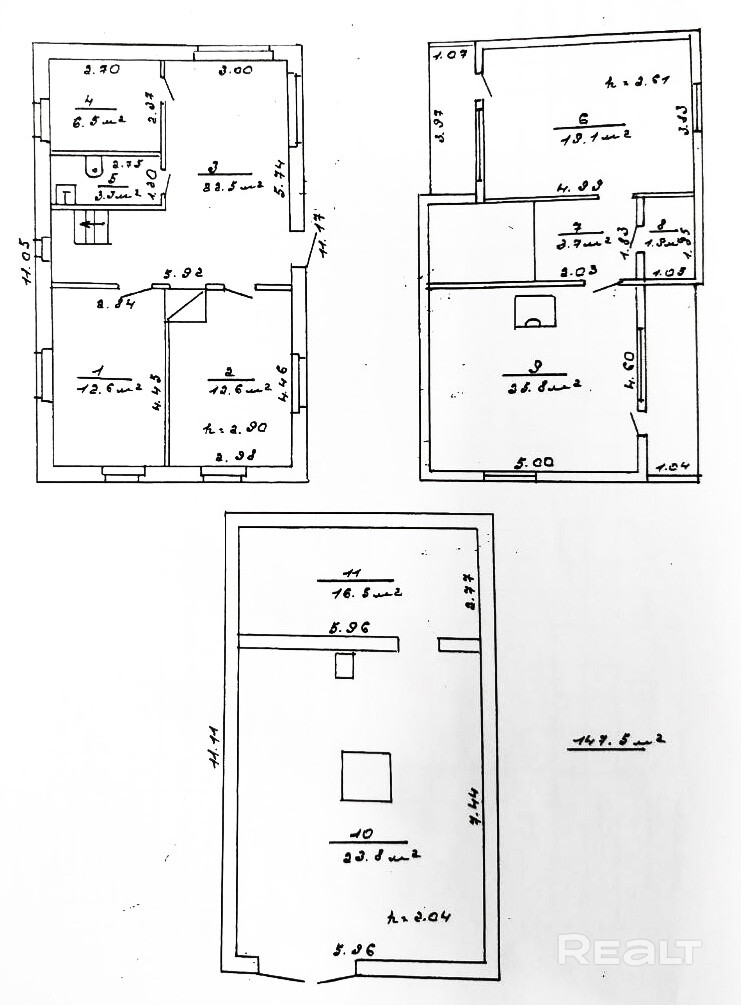 2.70
3.00
4
6.5 м²
2.37
3
5.74
2.75
5
5.92
11.05
11.17
2.84
1
12.6 м²
4.45
2
12.6 м²
4.46
h = 2.90
2.98
1.07
h = 2.61
3.97
6
19.1 м²
3.83
4.99
7
3.7 м²
1.83
8
1.9 м²
2.03
1.05
9
25.8 м²
4.60
5.00
1.04
11
16.5 м²
2.77
5.96
11.11
147.5 м²
7.44
10
h = 2.04
5.96
REALT